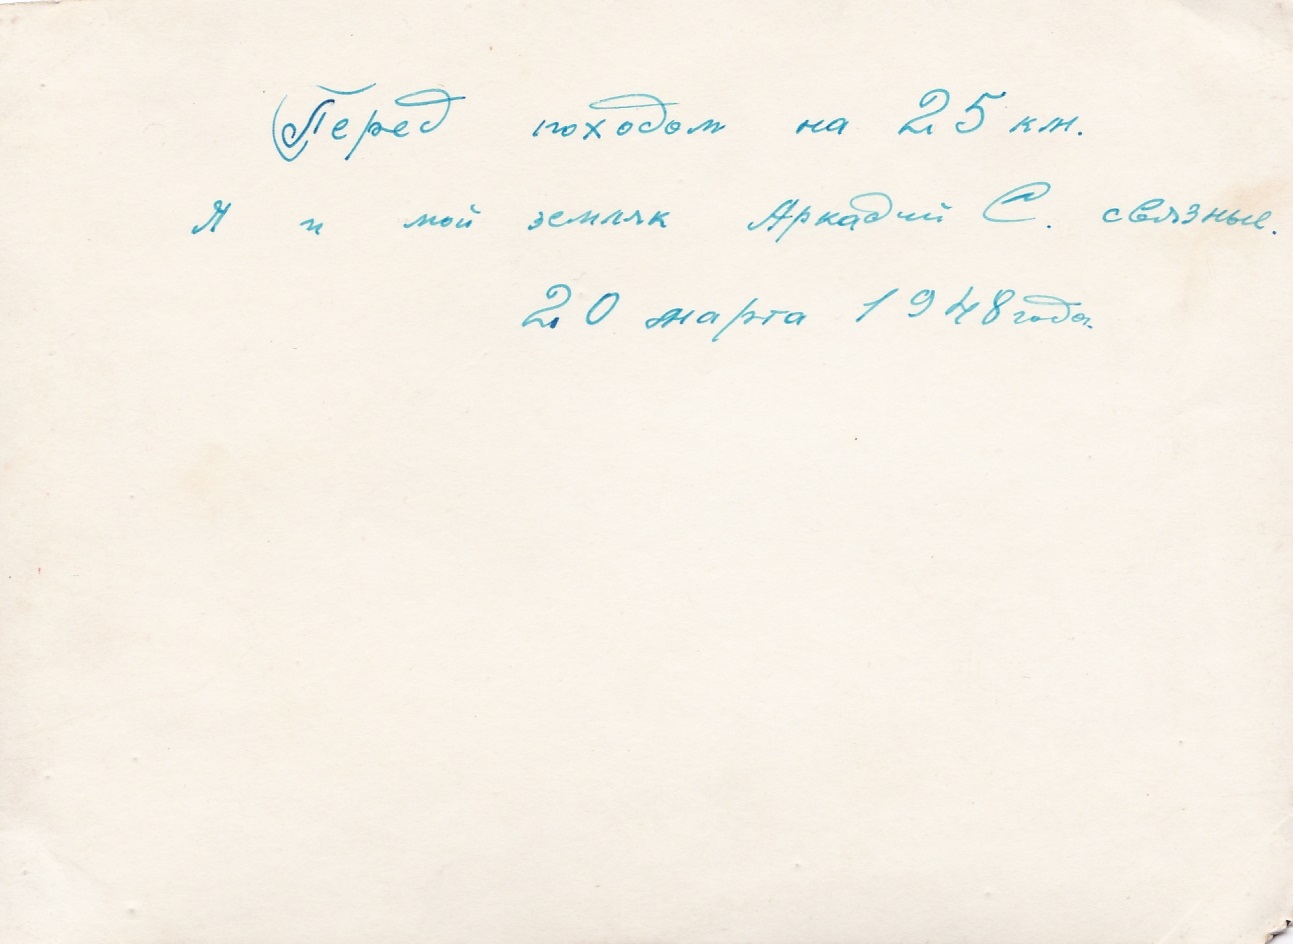 Перед походом на 25 км.
Я и мой земляк Аркадий С. связные.
20 марта 1948 года.